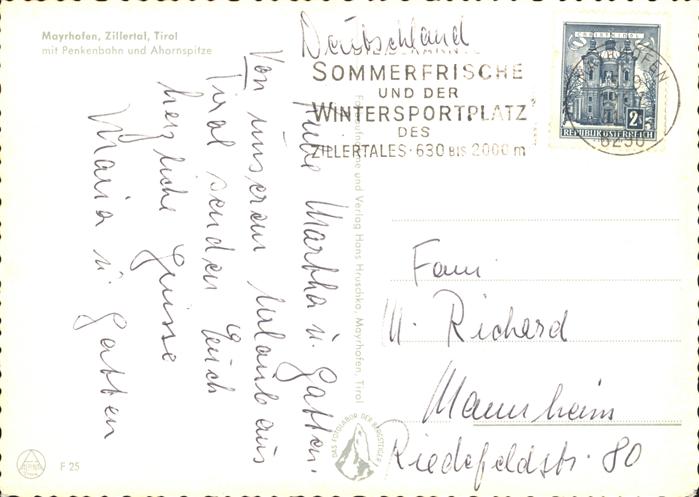 Mayrhofen, Zillertal, Tirol
mit Penkenbahn und Ahornspitze
Deutschland
SOMMERFRISCHE
UND DER
WINTERSPORTPLATZ
DES
ZILLERTALES · 630 BIS 2000 m
CHRISTKINDL
2
REPUBLIK ÖSTERREICH
6290
Liebe Martha u. Gatten.
Von unserem Urlaub aus
Tirol senden Euch
herzliche Grüsse
Maria u. Gatten
und Verlag Hans Hruschka, Mayrhofen, Tirol
Fam.
M. Richard
Mannheim
Riedfeldstr. 80
DAS FOTOLABOR DER BERGSTEIGER
F 25